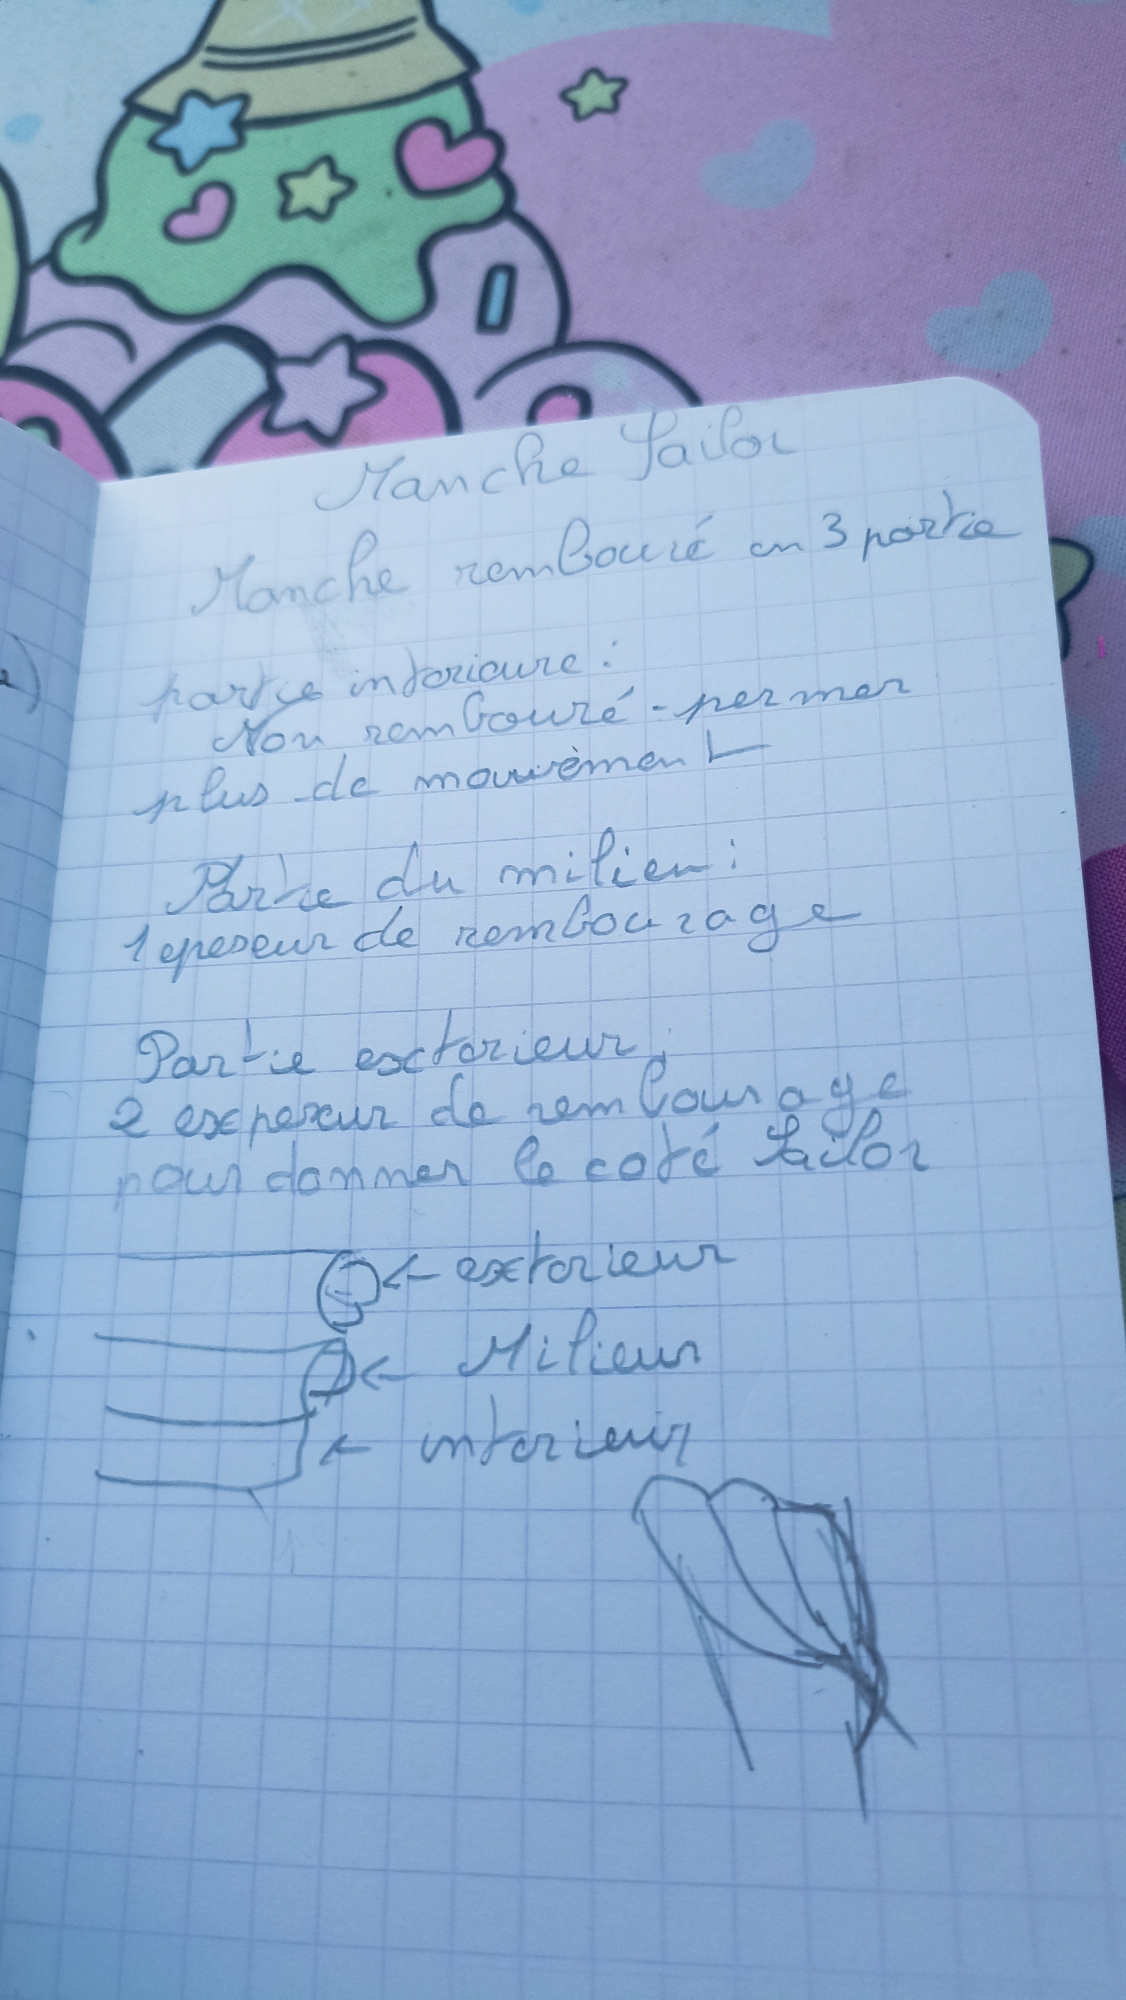 Manche Sailor
Manche rembouré en 3 partie
partie interieure :
Non rembouré - permer
plus de mouvèment
Partie du milieu :
1 epeseur de rembourage
Partie exterieur :
2 expeseur de rembourage
pour donner le coté Sailor
← exterieur
← Milieur
← interieur